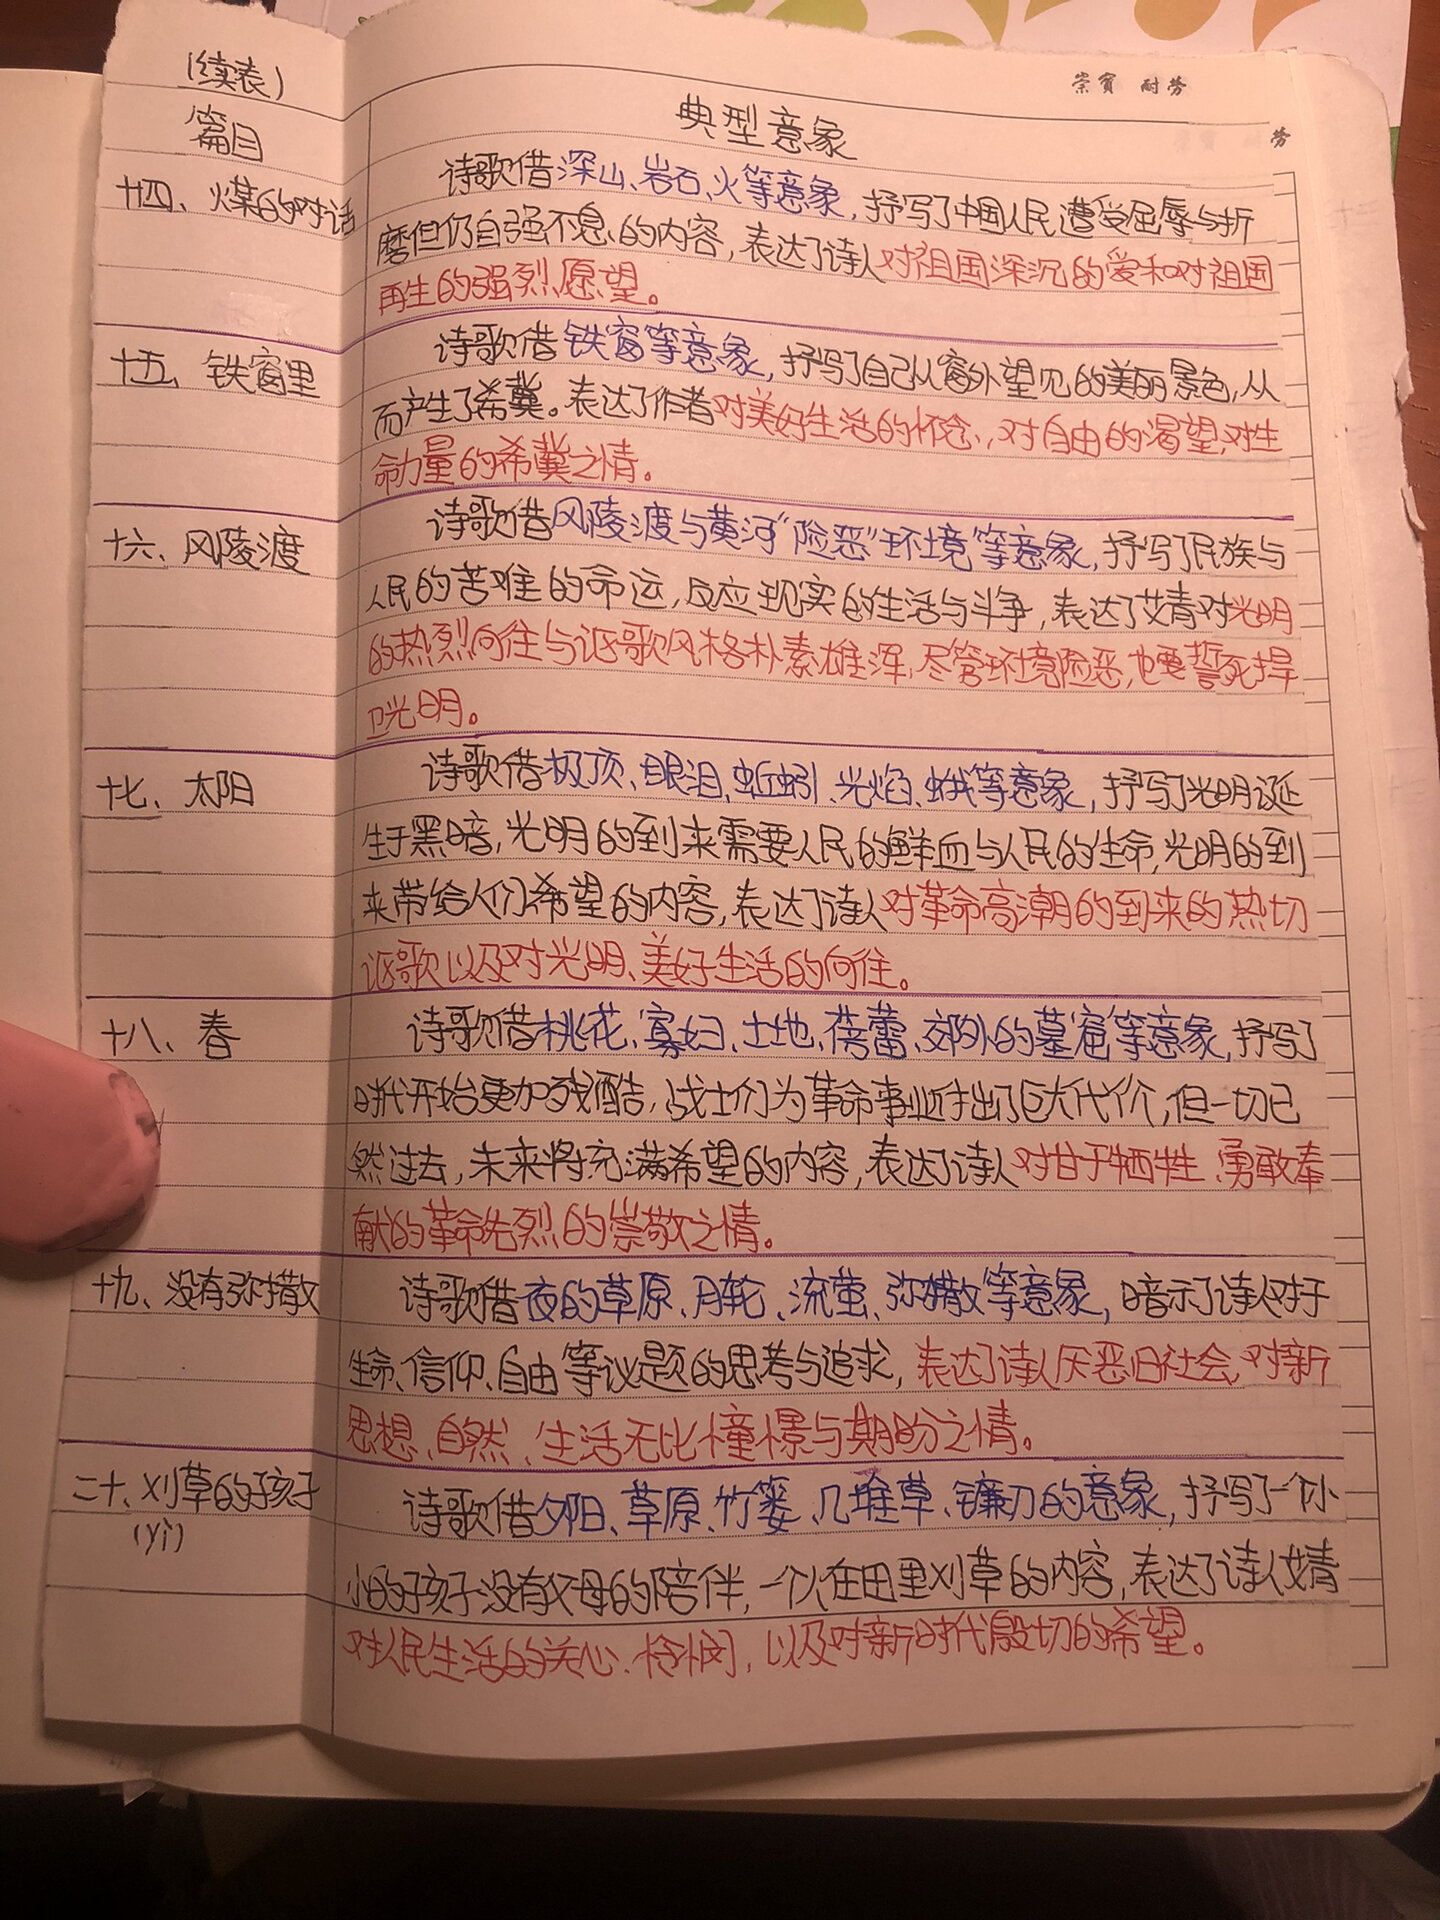 (续表)
崇实 耐劳
劳
篇目
典型意象
十四、煤的对话
诗歌借深山、岩石、火等意象，抒写了中国人民遭受屈辱与折
磨但仍自强不息的内容，表达了诗人对祖国深沉的爱和对祖国
再生的强烈愿望。
十五、铁窗里
诗歌借铁窗等意象，抒写了自己从窗外望见的美丽景色，从
而产生了希冀。表达了作者对美好生活的怀念，对自由的渴望，对生
命力量的希冀之情。
十六、风陵渡
诗歌借风陵渡与黄河“险恶”环境等意象，抒写了民族与
人民的苦难的命运，反应现实的生活与斗争，表达了艾青对光明
的热烈向往与讴歌风格朴素雄浑，尽管环境险恶，也要誓死捍
卫光明。
十七、太阳
诗歌借极顶、眼泪、蚯蚓、光焰、蛾等意象，抒写了光明诞
生于黑暗，光明的到来需要人民的鲜血与人民的生命，光明的到
来带给人们希望的内容，表达了诗人对革命高潮的到来的热切
讴歌以及对光明、美好生活的向往。
十八、春
诗歌借桃花、寡妇、土地、蓓蕾、郊外的墓窟等意象，抒写了
时代开始更加残酷，战士们为革命事业付出了巨大代价，但一切已
然过去，未来将充满希望的内容，表达了诗人对甘于牺牲、勇敢奉
献的革命先烈的崇敬之情。
十九、没有弥撒
诗歌借夜的草原、月轮、流萤、弥撒等意象，暗示了诗人对于
生命、信仰、自由等议题的思考与追求，表达了诗人厌恶旧社会，对新
思想、自然、生活无比憧憬与期盼之情。
二十、刈草的孩子
(yì)
诗歌借夕阳、草原、竹篓、几堆草、镰刀的意象，抒写了一个小
小的孩子没有父母的陪伴，一个人在田里刈草的内容，表达了诗人艾青
对人民生活的关心、怜悯，以及对新时代殷切的希望。